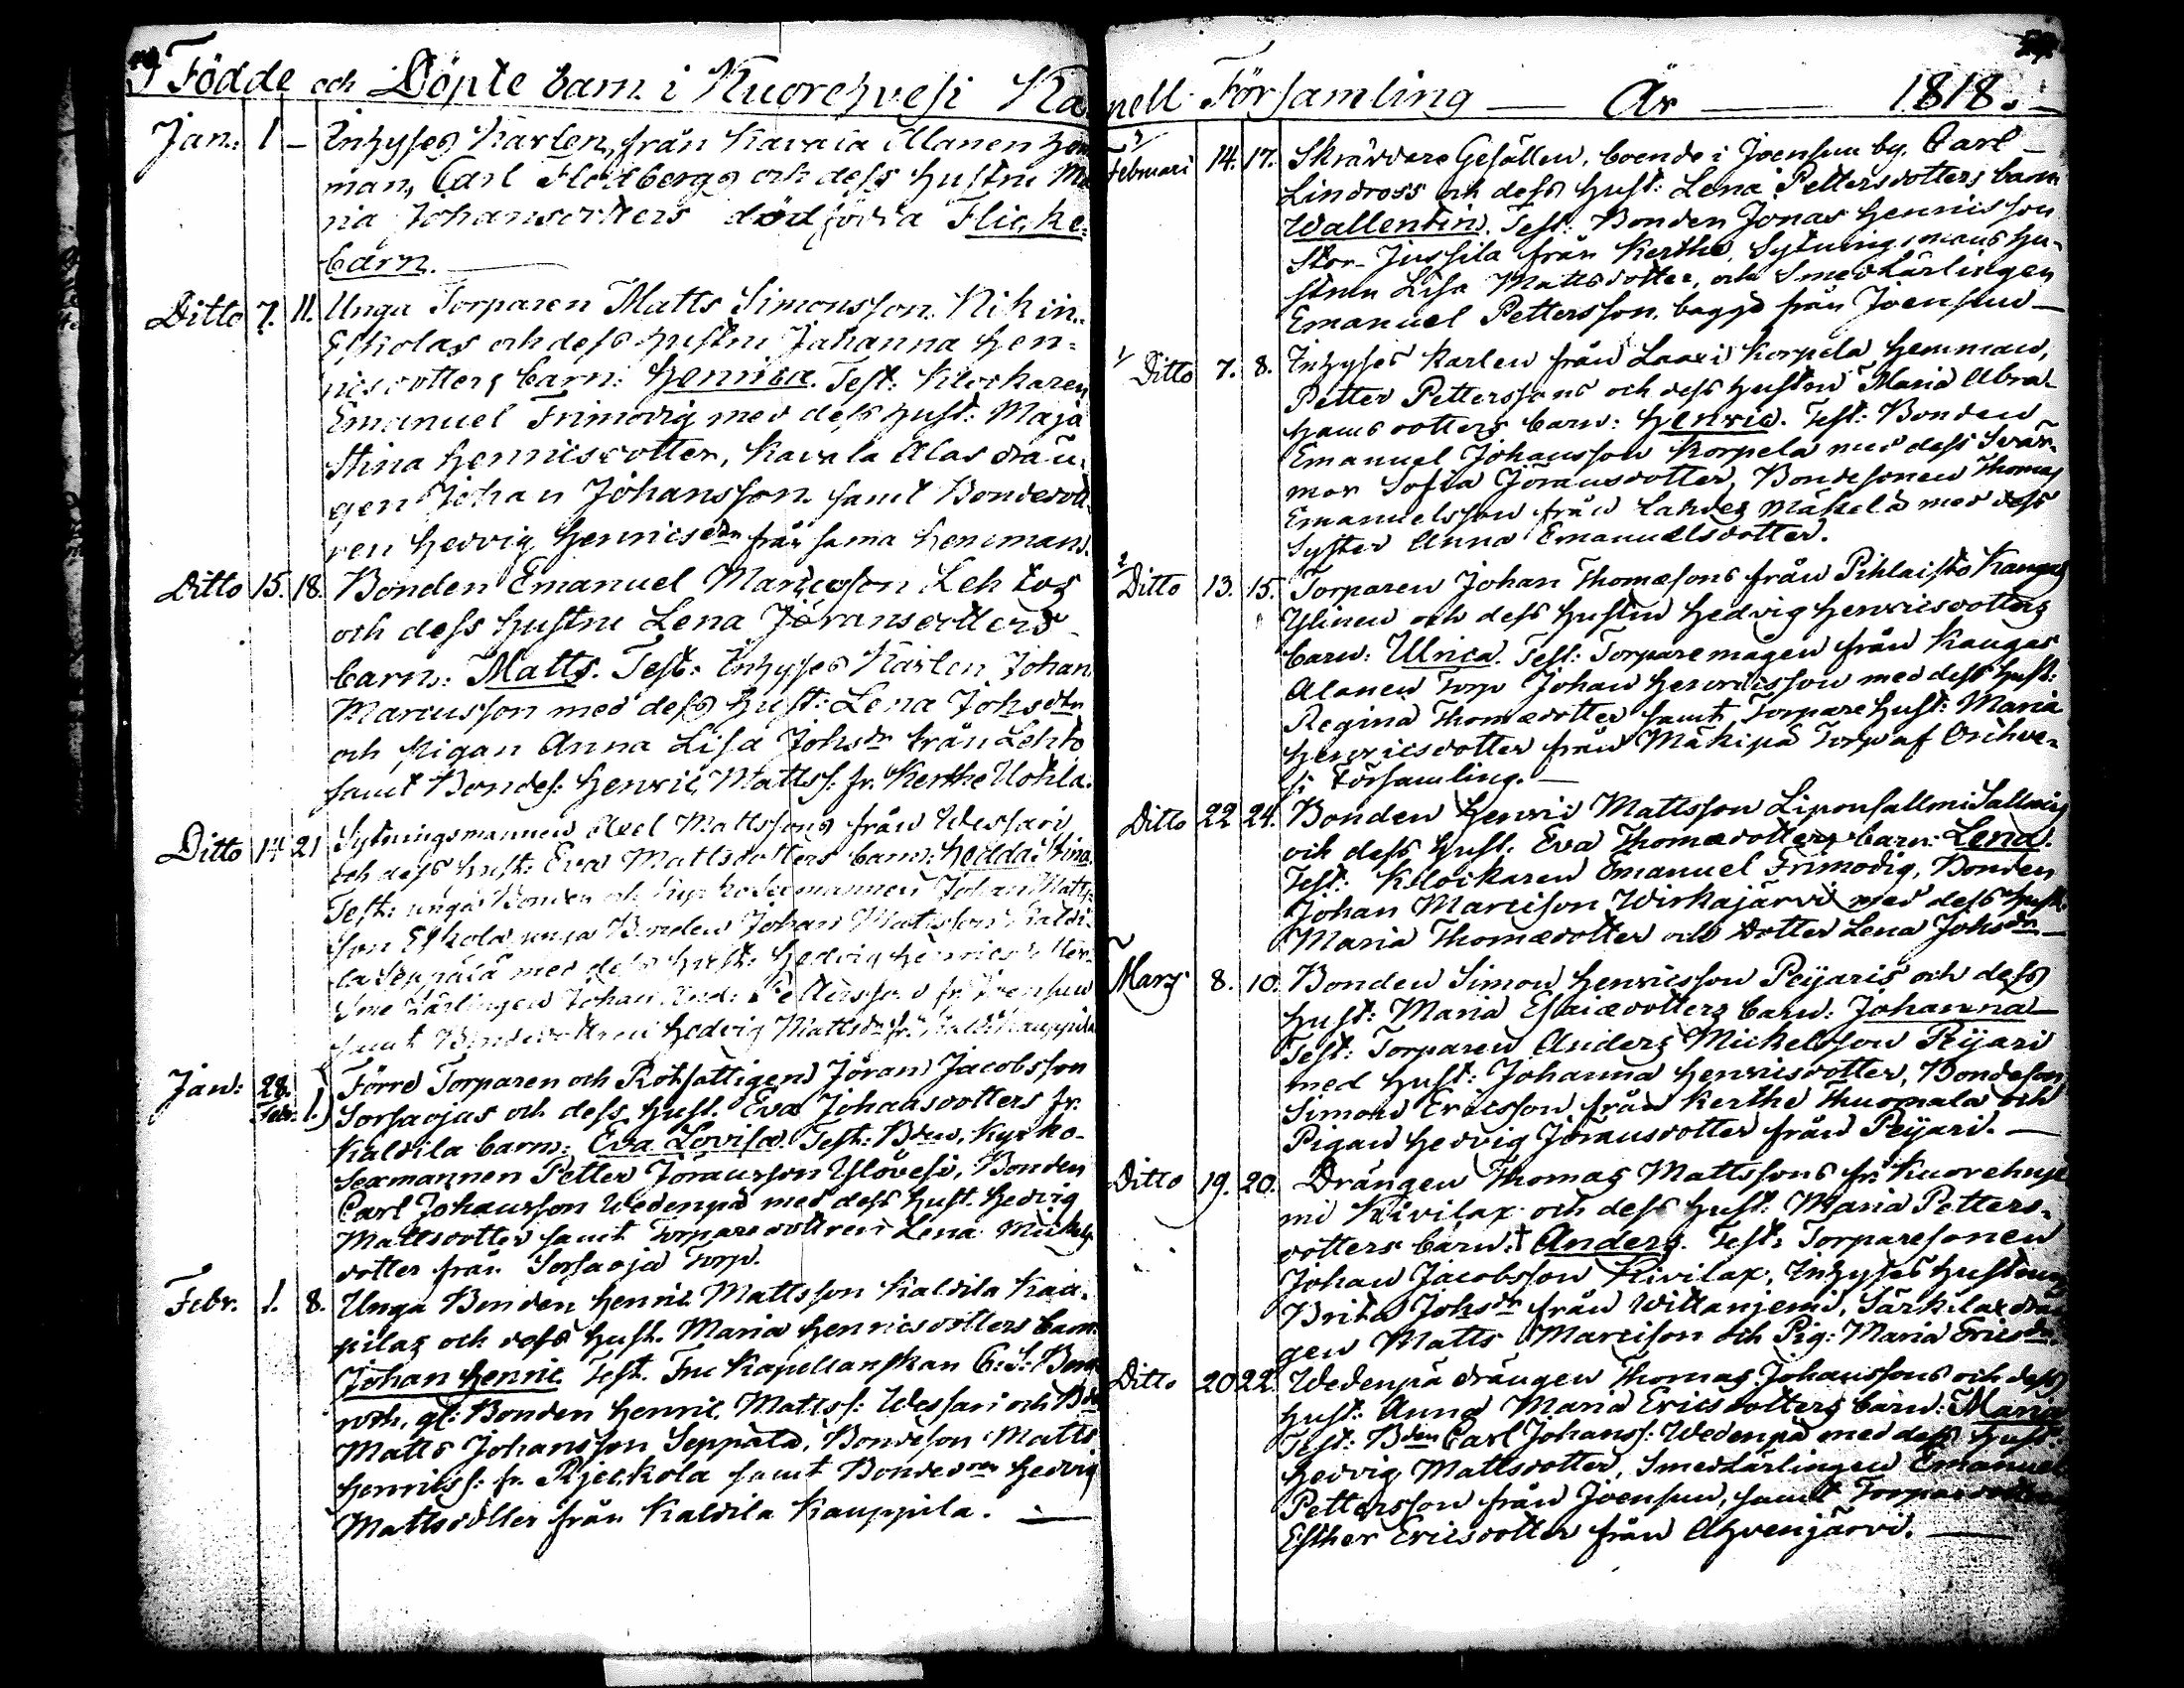 Födde och Döpte barn i Kuorehvesi Ka
Jan: 1 — Inhyses Karlen, från Kavala Alanen Hem
man, Carl Flodbergs och dess Hustru Ma
ria Johansdotters dödfödda Flicke-
barn.
Ditto 7. 11. Unga Torparen Matts Simonsson
Eskolas och dess Hustru Johanna Hen-
ricsdotters barn: Henrica. Test: Klockaren
Emanuel Frimodig med dess Hust: Maja
Stina Henricsdotter, Kavala Alas drän-
gen Johan Johansson samt Bondedott
ren Hedvig Henricsdtr från sama Hemman.
Ditto 15. 18. Bonden Emanuel Marcusson Lehtos
och dess Hustru Lena Jöransdotters
barn: Matts. Test: Inhyses Karlen Johan
Marcusson med dess Hust: Lena Johsdtr
och Pigan Anna Lisa Johsdr från Lehto
samt Bondes: Henric Mattss: fr. Kerthe Uotila.
Ditto 14 21 Sytningsmannen Axel Mattssons från Wessari
och dess Hust: Eva Mattsdotters barn: Hedda Stina.
Test: unga Bonden och Kyrkosexmannen Johan Matts-
son Eskola, unga Bonden Johan Mattsson Kaldi-
la Seppälä med dess Hust: Hedvig Henricsdotter
Smedlärlingen Johan Pettersson fr. Joensuu
samt Bondedottren Hedvig Mattsdr fr. Kaldila Kauppila
Jan: 28. Febr. 1. Förre Torparen och Rotfattigen Jöran Jacobsson
Sorsaojas och dess Hust. Eva Johansdotters fr.
Kaldila barn: Eva Lovisa. Test: Bden, Kyrko-
Sexmannen Petter Jöransson Ylövesi, Bonden
Carl Johansson Wedenpä med dess Hust. Hedvig
Mattsdotter samt Torparedottren Lena Mickels
dotter från Sorsaoja Torp.
Febr. 1. 8. Unga Bonden Henric Mattsson Kaldila Kau-
pilas och dess Hust. Maria Henricsdotters barn
Johan Henric Test. Fru Kapellanskan C: S:
gl: Bonden Henric Mattss: Wessari och Bde
Matts Johansson Seppälä, Bondeson Matts
Henricss: fr. Rjeckola samt Bondedren Hedvig
Mattsdotter från Kaldila Kauppila. —
pell Församling — År — 1818. —
Februari 14. 17. Skräddare Gesällen, boende i Joensuu by. Carl
Lindross och dess Hust: Lena Pettersdotters barn
Wallentin. Test: Bonden Jonas Henricsson
Stor-Jussila från Kerthe, Sytningsmans Hu-
strun Lisa Mattsdotter, och Smedlärlingen
Emanuel Pettersson, bägge från Joensuu —
Ditto 7. 8. Inhyses Karlen från Laari Korpela Hemman,
Petter Petterssons och dess Hustru Maria Abra-
hamsdotters barn: Henric. Test: Bonden
Emanuel Johansson Korpela med dess Svär-
mor Sofia Jöransdotter, Bondesonen Thomas
Emanuelsson från Lahdes Mäkelä med dess
Syster Anna Emanuelsdotter.
Ditto 13. 15. Torparen Johan Thomæsons från Pihlaisto Kangas
Ylinen och dess Hustru Hedvig Henricsdotters
barn: Ulrica. Test: Torparemågen från Kangas
Alanen Torp Johan Henricsson med dess Hust:
Regina Thomædotter samt Torpare Hust: Maria
Henricsdotter från Mäkipä Torp af Orihve-
si Församling. —
Ditto 22 24. Bonden Henric Mattsson Liponsallmi Sallmis
och dess Hust. Eva Thomædotters barn: Lena.
Test: Klockaren Emanuel Frimodig, Bonden
Johan Marcison Wirkajärvi med dess Hust.
Maria Thomædotter och dotter Lena Johsdr —
Mars 8. 10. Bonden Simon Henricsson Peijaris och dess
Hust: Maria Esaiædotters barn: Johanna —
Test: Torparen Anders Mickelsson Peijari
med Hust: Johanna Henricsdotter, Bondeson
Simon Ericsson från Kerthe Thuomala och
Pigan Hedvig Jöransdotter från Peijari. —
Ditto 19. 20. Drängen Thomas Mattssons fr. Kuorehnje
mi Kivilax och dess Hust: Maria Petters-
dotters barn: † Anders. Test: Torparesonen
Johan Jacobsson Kivilax, Inhyses Hustrun
Brita Johsdr från Wittanjemi, Särkilax drän
gen Matts Marcison och Pig: Maria Ericsdr.
Ditto 20 22. Wedenpä drängen Thomas Johanssons och dess
Hust: Anna Maria Ericsdotters barn: Maria
Test: Bden Carl Johanss: Wedenpä med dess Hust:
Hedvig Mattsdotter, Smedlärlingen Emanuel
Pettersson från Joensuu, samt Torparedottren
Esther Ericsdotter från Ahvenjärvi. —